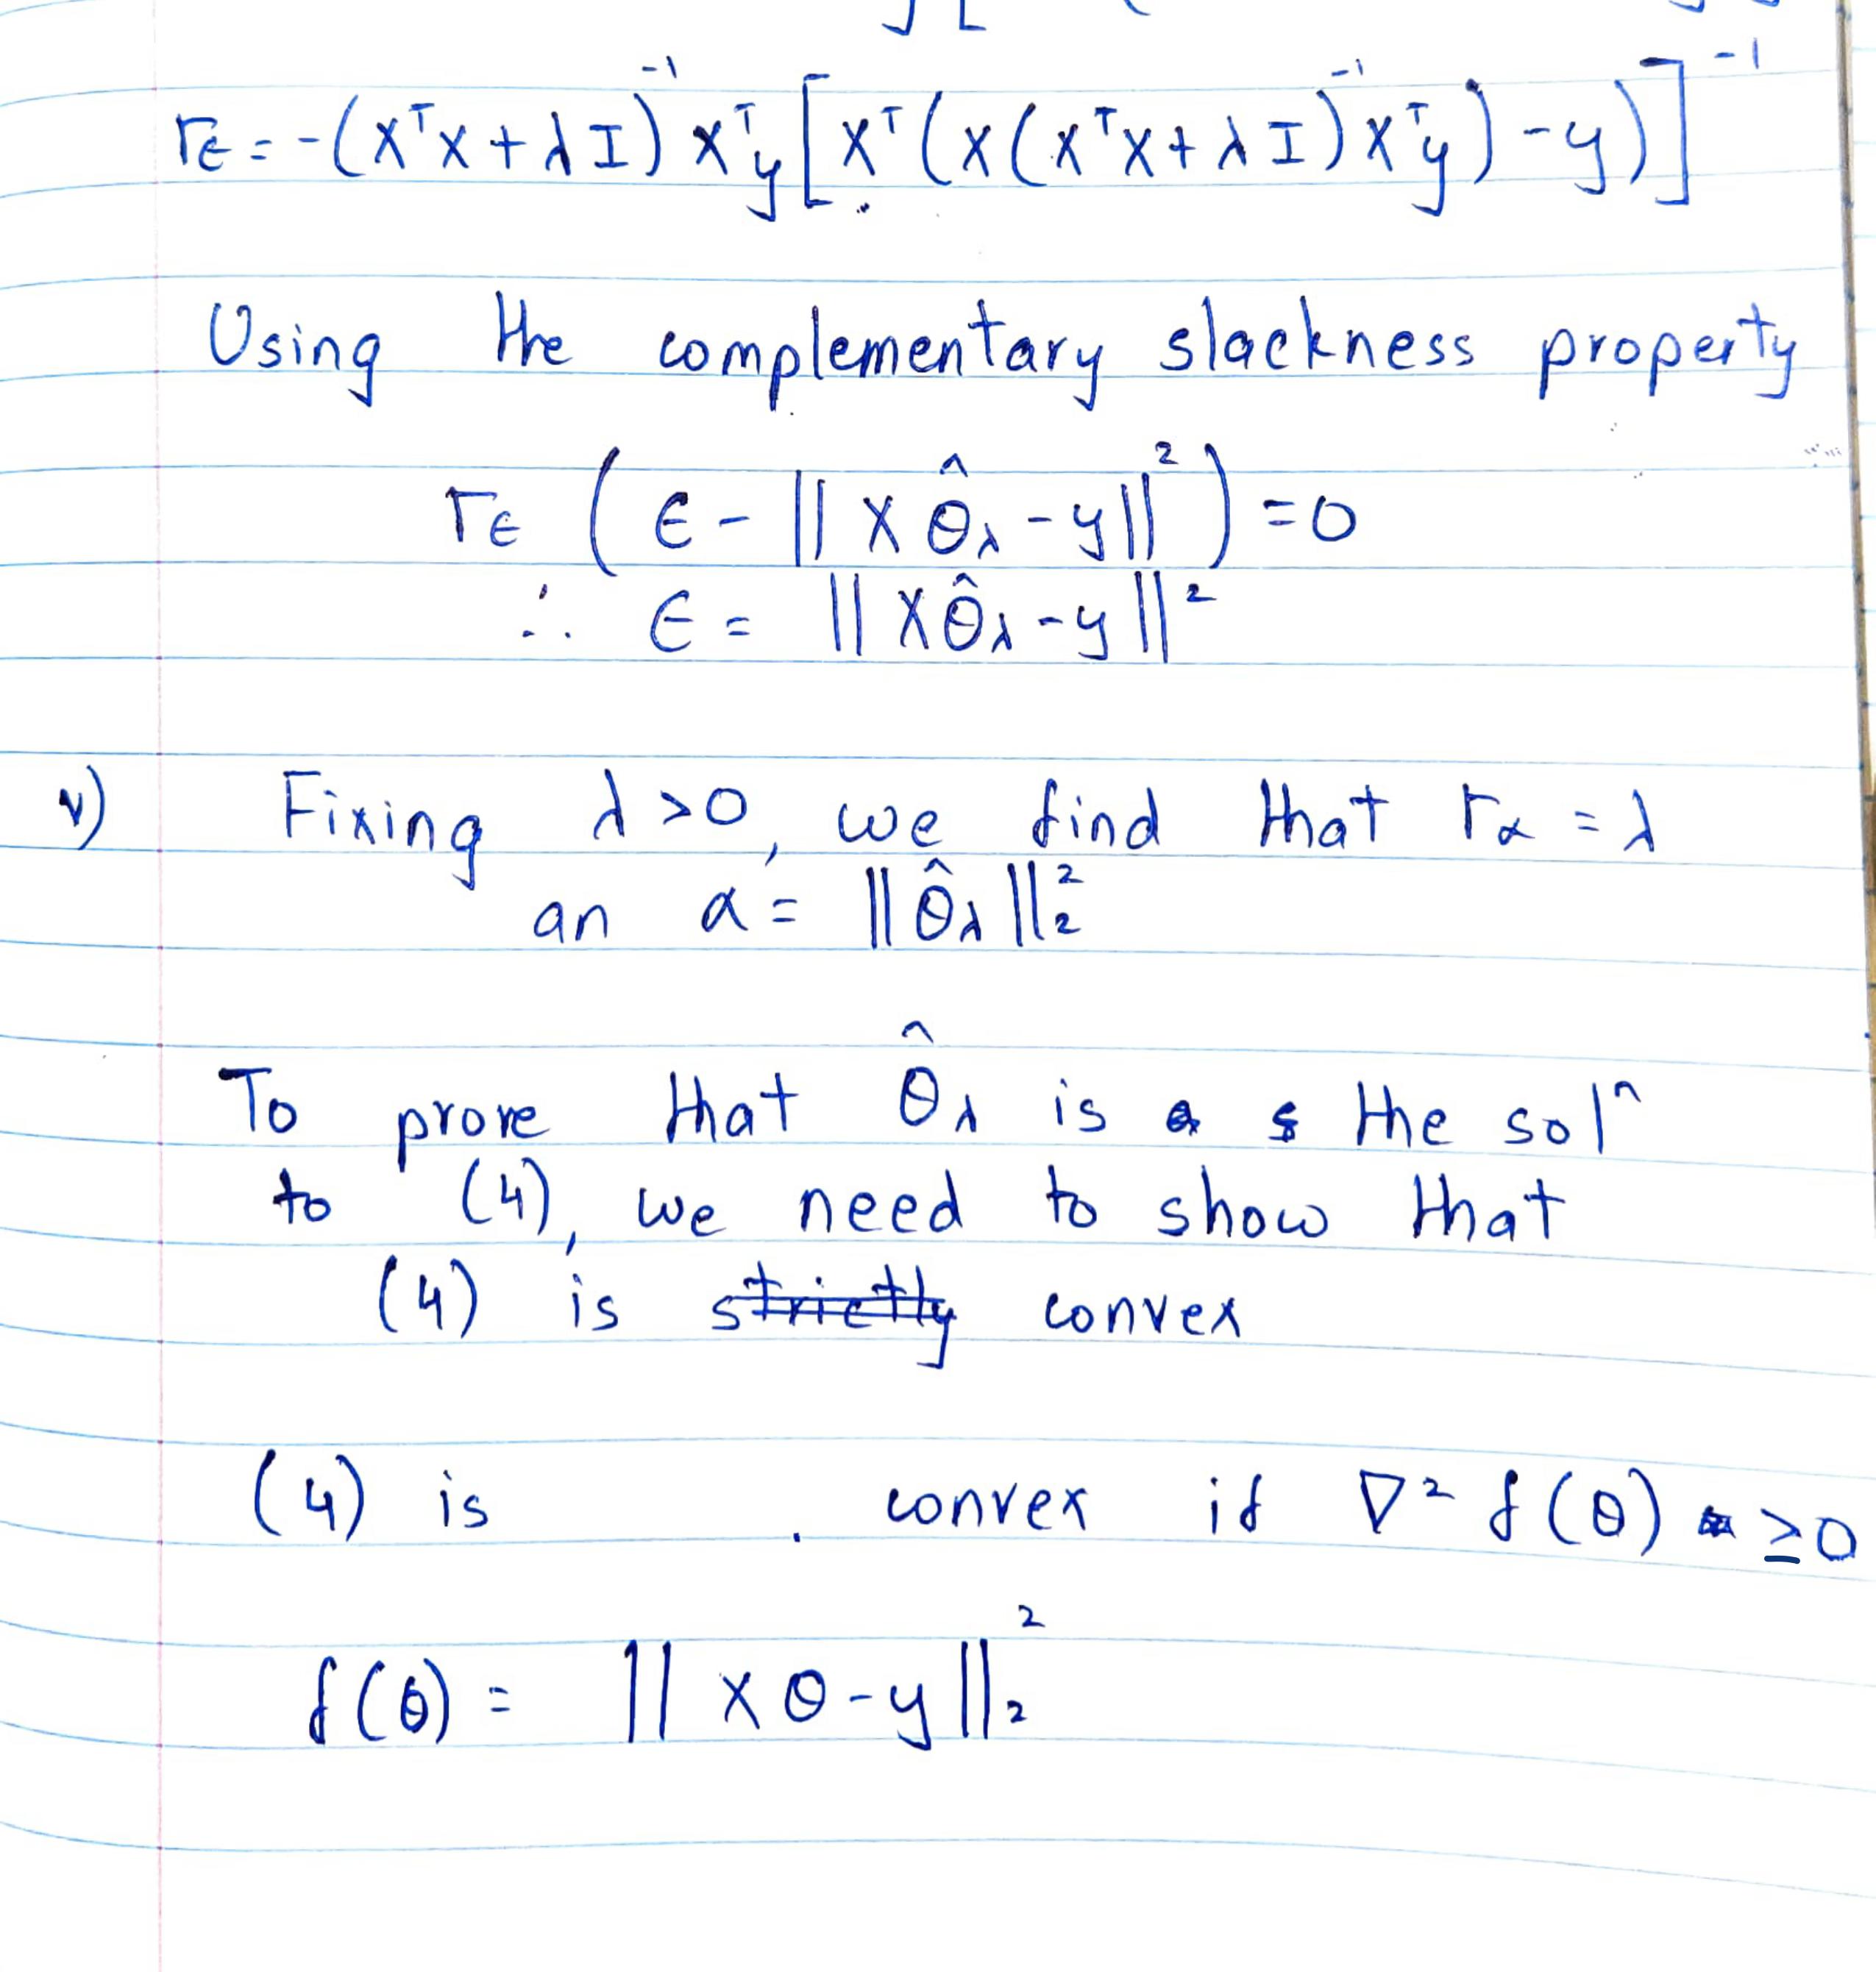 r_ϵ = -(XᵀX + λI)⁻¹ Xᵀy [Xᵀ(X(XᵀX + λI)⁻¹Xᵀy) - y)]⁻¹
Using the complementary slackness property
r_ϵ (ϵ - ||Xθ̂_λ - y||²) = 0
∴ ϵ = ||Xθ̂_λ - y||²
v) Fixing λ > 0, we find that r_α = λ
an α = ||θ̂_λ||₂²
To prove that θ̂_λ is the solⁿ
to (4), we need to show that
(4) is strictly convex
(4) is convex if ∇² f(θ) ≥ 0
f(θ) = ||Xθ - y||₂²